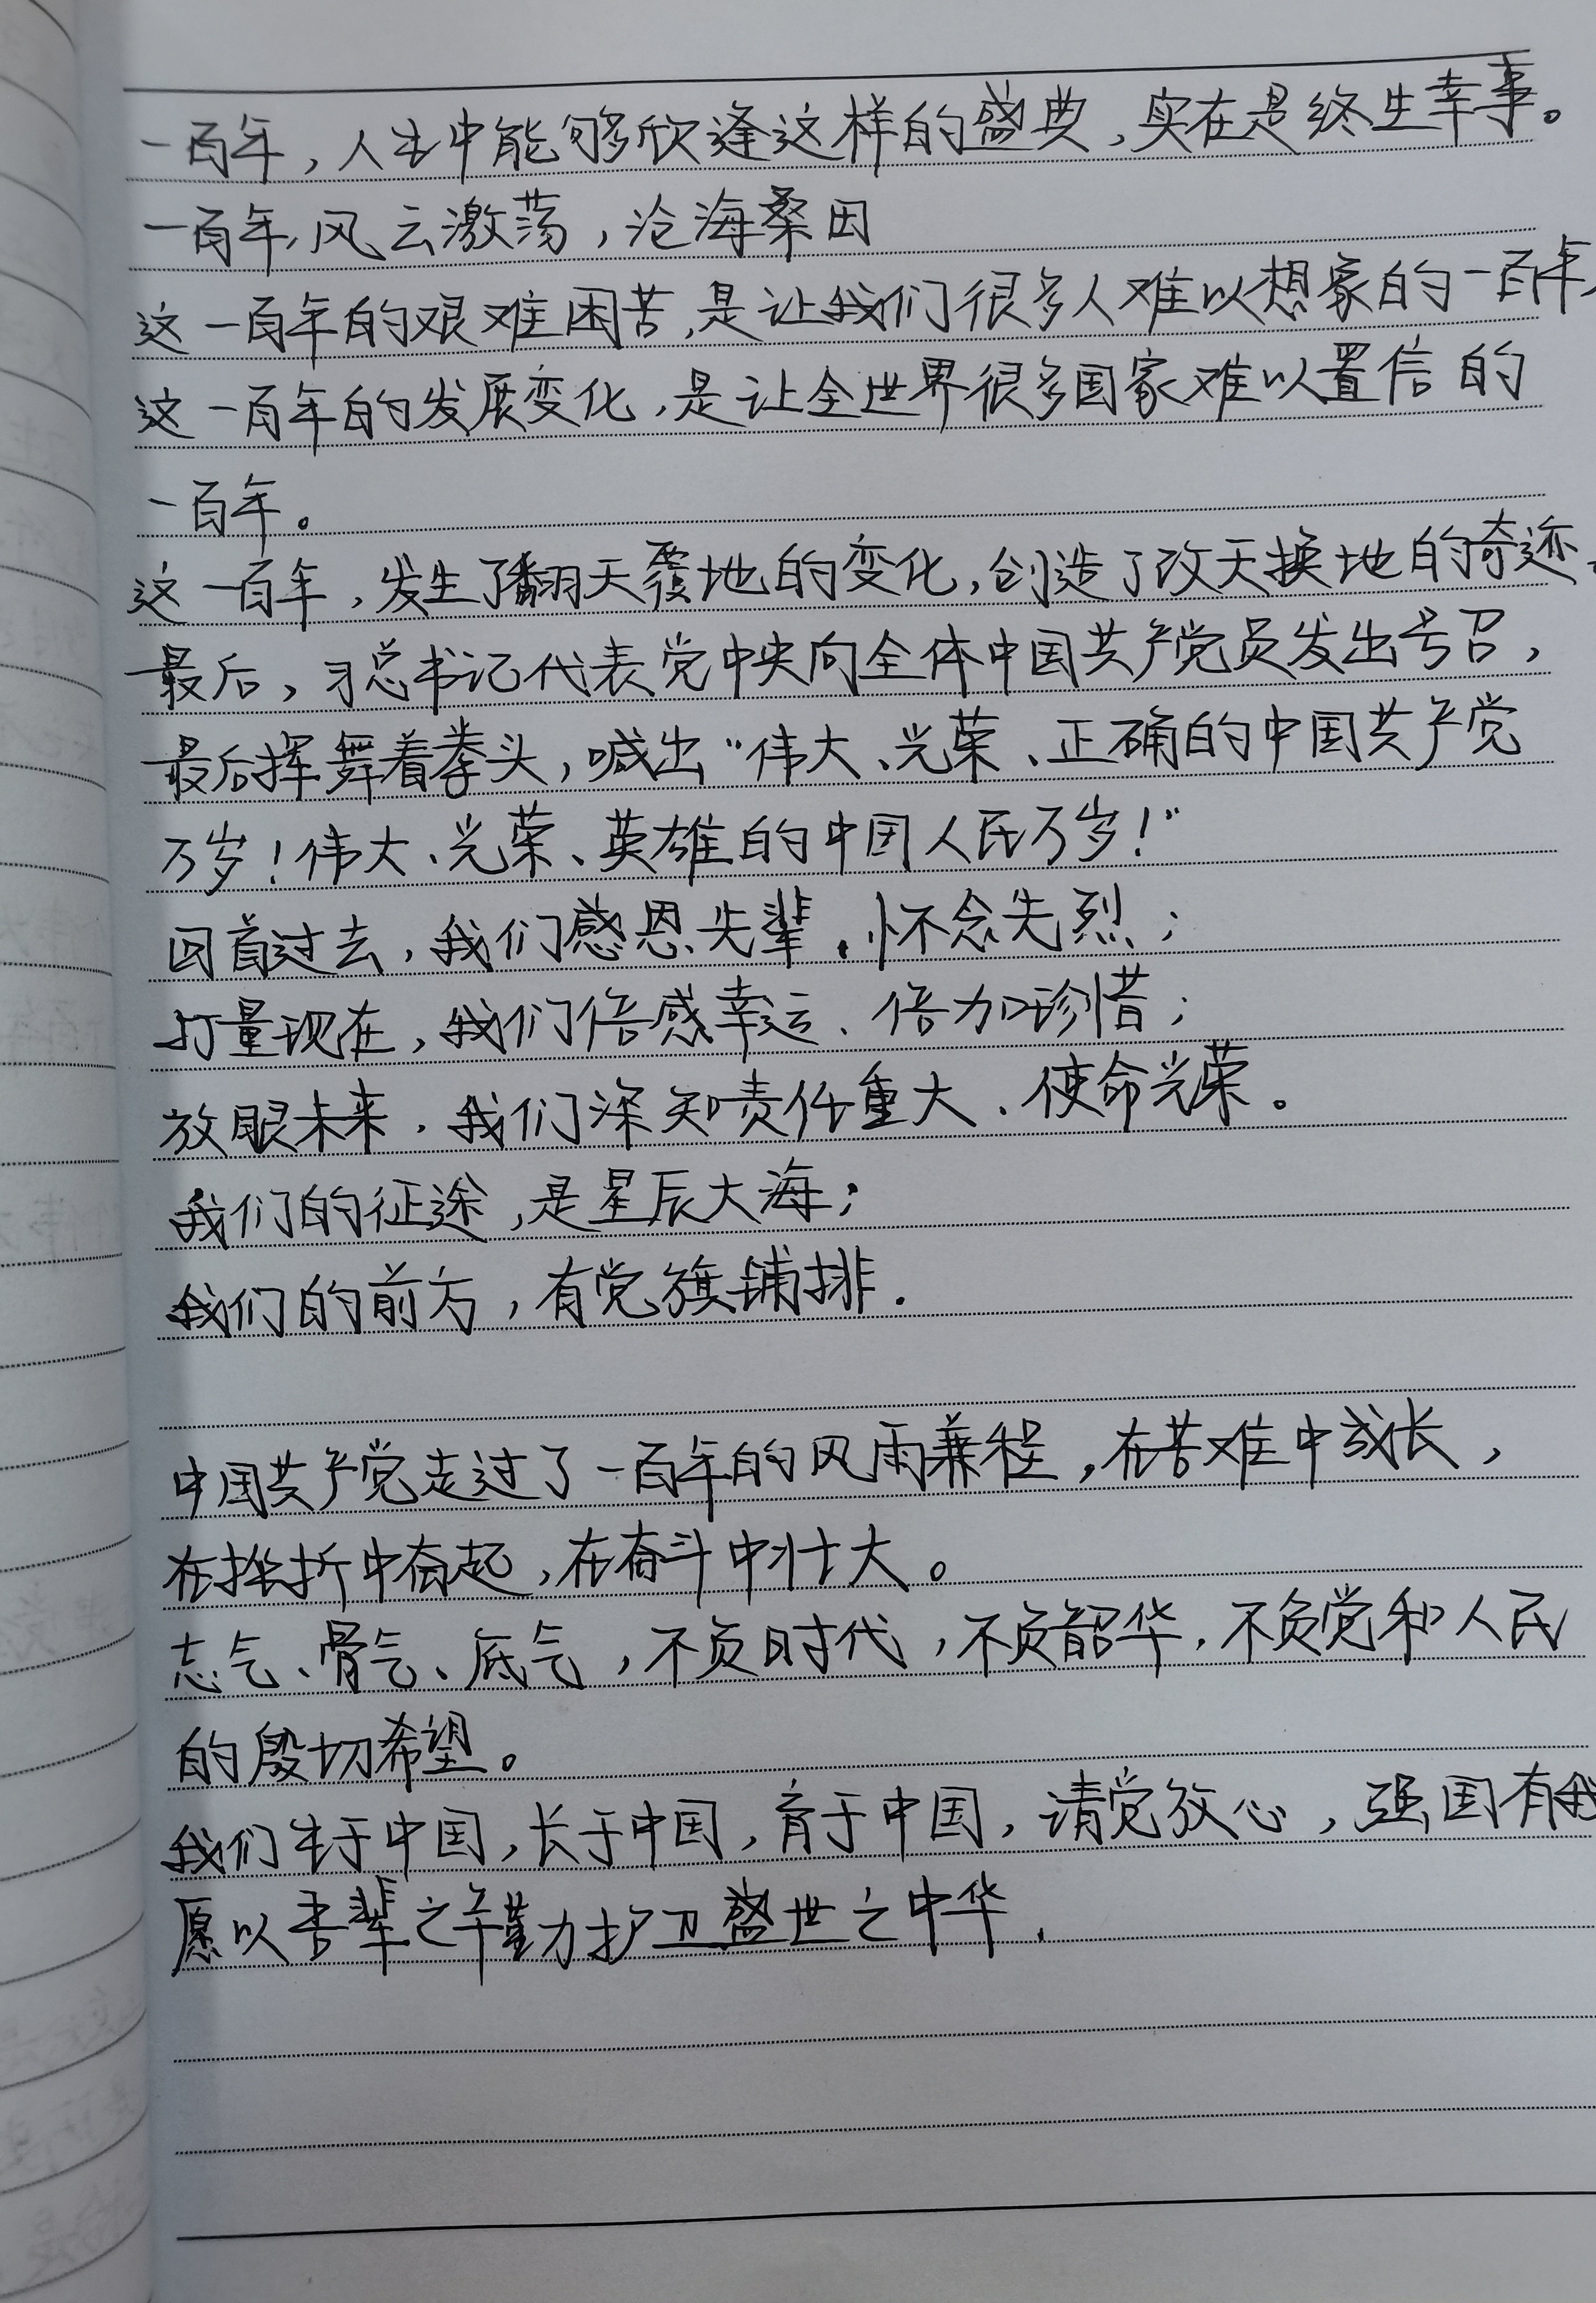 一百年，人生中能够欣逢这样的盛典，实在是终生幸事。
一百年，风云激荡，沧海桑田
这一百年的艰难困苦，是让我们很多人难以想象的一百年，
这一百年的发展变化，是让全世界很多国家难以置信的
一百年。
这一百年，发生了翻天覆地的变化，创造了改天换地的奇迹。
最后，习总书记代表党中央向全体中国共产党员发出号召，
最后挥舞着拳头，喊出“伟大、光荣、正确的中国共产党
万岁！伟大、光荣、英雄的中国人民万岁！”
回首过去，我们感恩先辈、怀念先烈；
打量现在，我们倍感幸运、倍加珍惜；
放眼未来，我们深知责任重大、使命光荣。
我们的征途，是星辰大海；
我们的前方，有党旗铺排.
中国共产党走过了一百年的风雨兼程，在苦难中成长，
在挫折中奋起，在奋斗中壮大。
志气、骨气、底气，不负时代，不负韶华，不负党和人民
的殷切希望。
我们生于中国，长于中国，育于中国，请党放心，强国有我
愿以吾辈之辛勤力护卫盛世之中华.